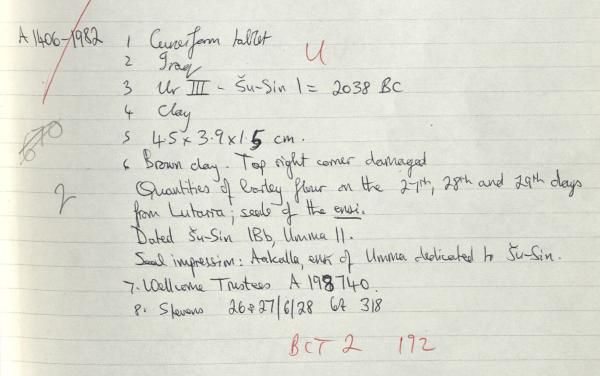 A 1406-1982 1 Cuneiform tablet
U
2 Iraq
3 Ur III - Šu-Sin 1 = 2038 BC
4 Clay
5 4.5 x 3.9 x 1.5 cm.
6 Brown clay. Top right corner damaged
Quantities of barley flour on the 27th, 28th and 29th days
2
from Lutarra; seals of the ensi.
Dated Šu-Sin 1Bb, Umma 11.
Seal impression: Aakalla, ensi of Umma dedicated to Šu-Sin.
7. Wellcome Trustees A 198740.
8. Stevens 26&27/6/28 64 318
BCT 2 192